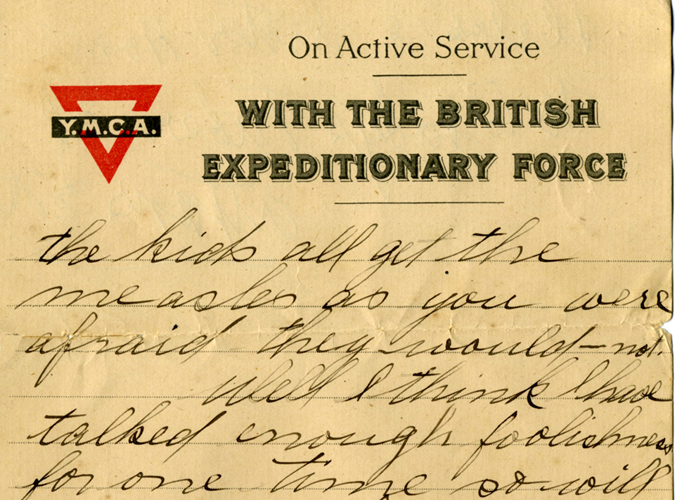 On Active Service
WITH THE BRITISH
Y.M.C.A.
EXPEDITIONARY FORCE
the kids all get the
measles as you were
afraid they would - not.
Well I think I have
talked enough foolishness
for one time so will